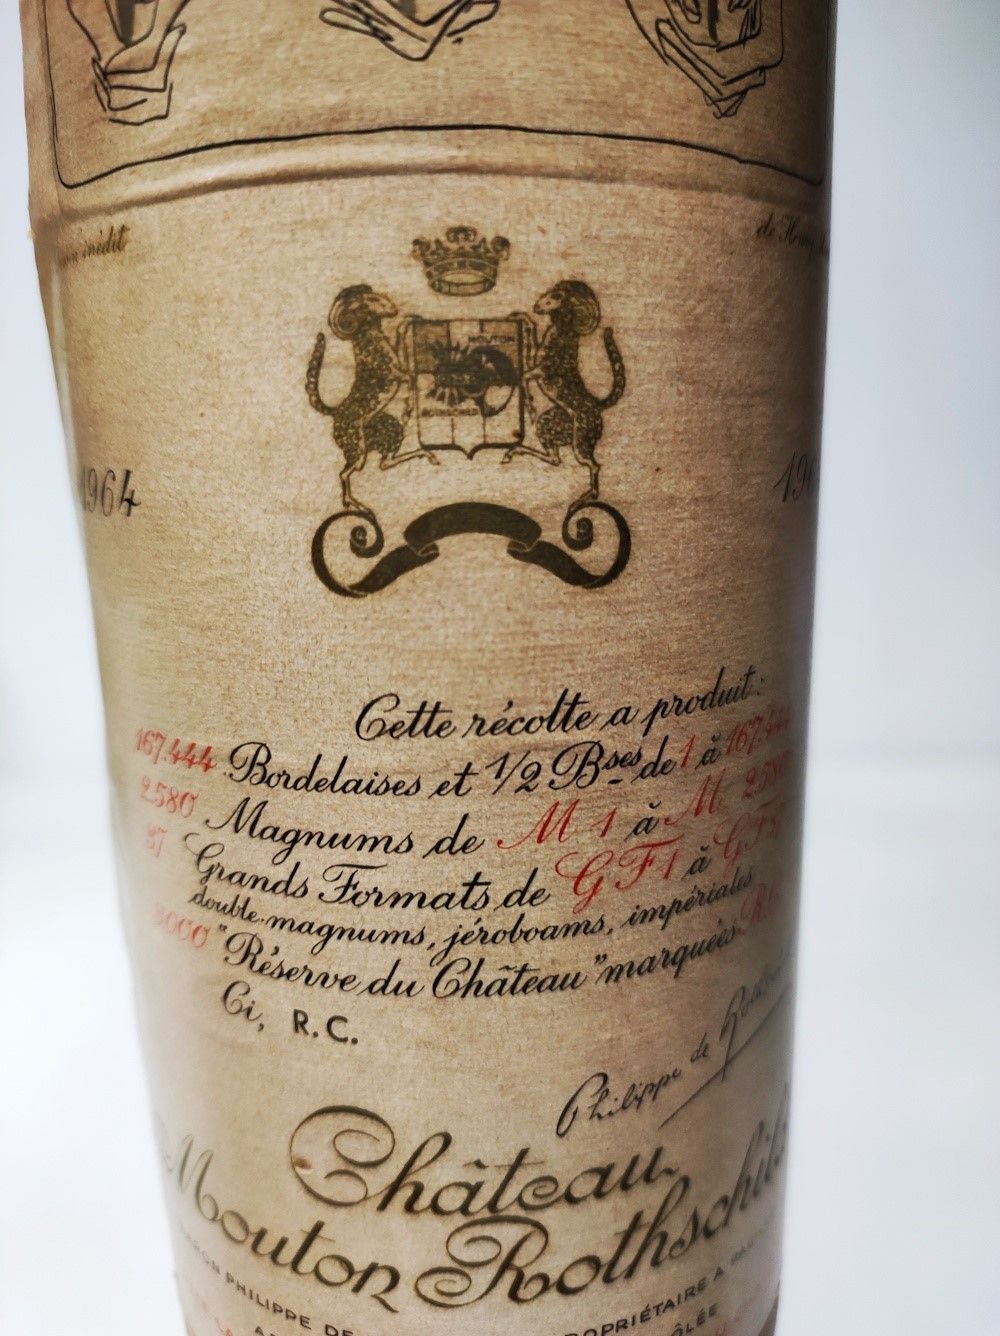 inédit de
MOUTON
ROTHSCHILD
1964
Cette récolte a produit:
167.444 Bordelaises et 1/2 Bses de 1 à 167.444
2580 Magnums de M 1 à M 2580
37 Grands Formats de GF1 à GF37
double-magnums, jéroboams, impériales
"Réserve du Château" marquées R.C.
Ci, R.C.
Philippe de
Château
Mouton Rothschild
PHILIPPE DE PROPRIÉTAIRE A